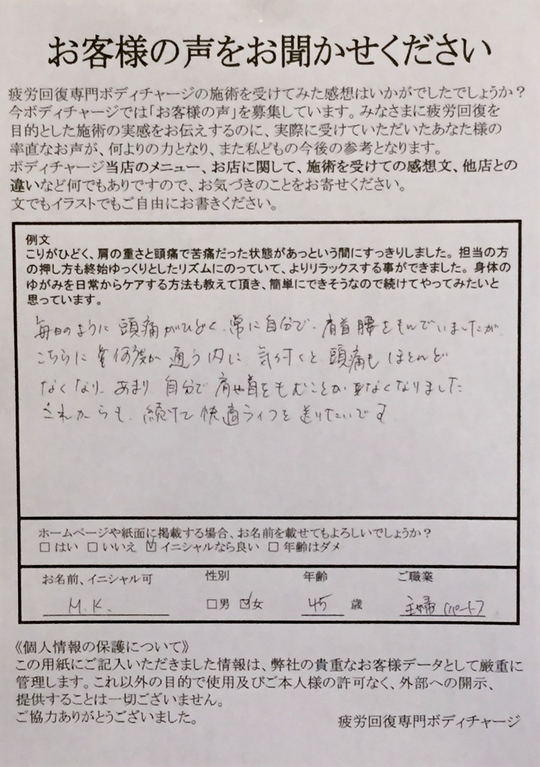 お客様の声をお聞かせください
疲労回復専門ボディチャージの施術を受けてみた感想はいかがでしたでしょうか?
今ボディチャージでは「お客様の声」を募集しています。みなさまに疲労回復を
目的とした施術の実感をお伝えするのに、実際に受けていただいたあなた様の
率直なお声が、何よりの力となり、また私どもの今後の参考となります。
ボディチャージ当店のメニュー、お店に関して、施術を受けての感想文、他店との
違いなど何でもありですので、お気づきのことをお寄せください。
文でもイラストでもご自由にお書きください。
例文
こりがひどく、肩の重さと頭痛で苦痛だった状態があっという間にすっきりしました。担当の方
の押し方も終始ゆっくりとしたリズムにのっていて、よりリラックスする事ができました。身体の
ゆがみを日常からケアする方法も教えて頂き、簡単にできそうなので続けてやってみたいと
思っています。
毎日のように頭痛がひどく、常に自分で、肩首腰をもんでいましたが
こちらに何度か通う内に、気づくと頭痛もほとんど
なくなり、あまり自分で肩や首をもむことがなくなりました
これからも、続けて快適ライフを送りたいです
ホームページや紙面に掲載する場合、お名前を載せてもよろしいでしょうか?
□はい □いいえ ☑イニシャルなら良い □年齢はダメ
お名前、イニシャル可 性別 年齢 ご職業
M.K. □男 ☑女 45 歳 主婦(パート)
《個人情報の保護について》
この用紙にご記入いただきました情報は、弊社の貴重なお客様データとして厳重に
管理します。これ以外の目的で使用及びご本人様の許可なく、外部への開示、
提供することは一切ございません。
ご協力ありがとうございました。
疲労回復専門ボディチャージ